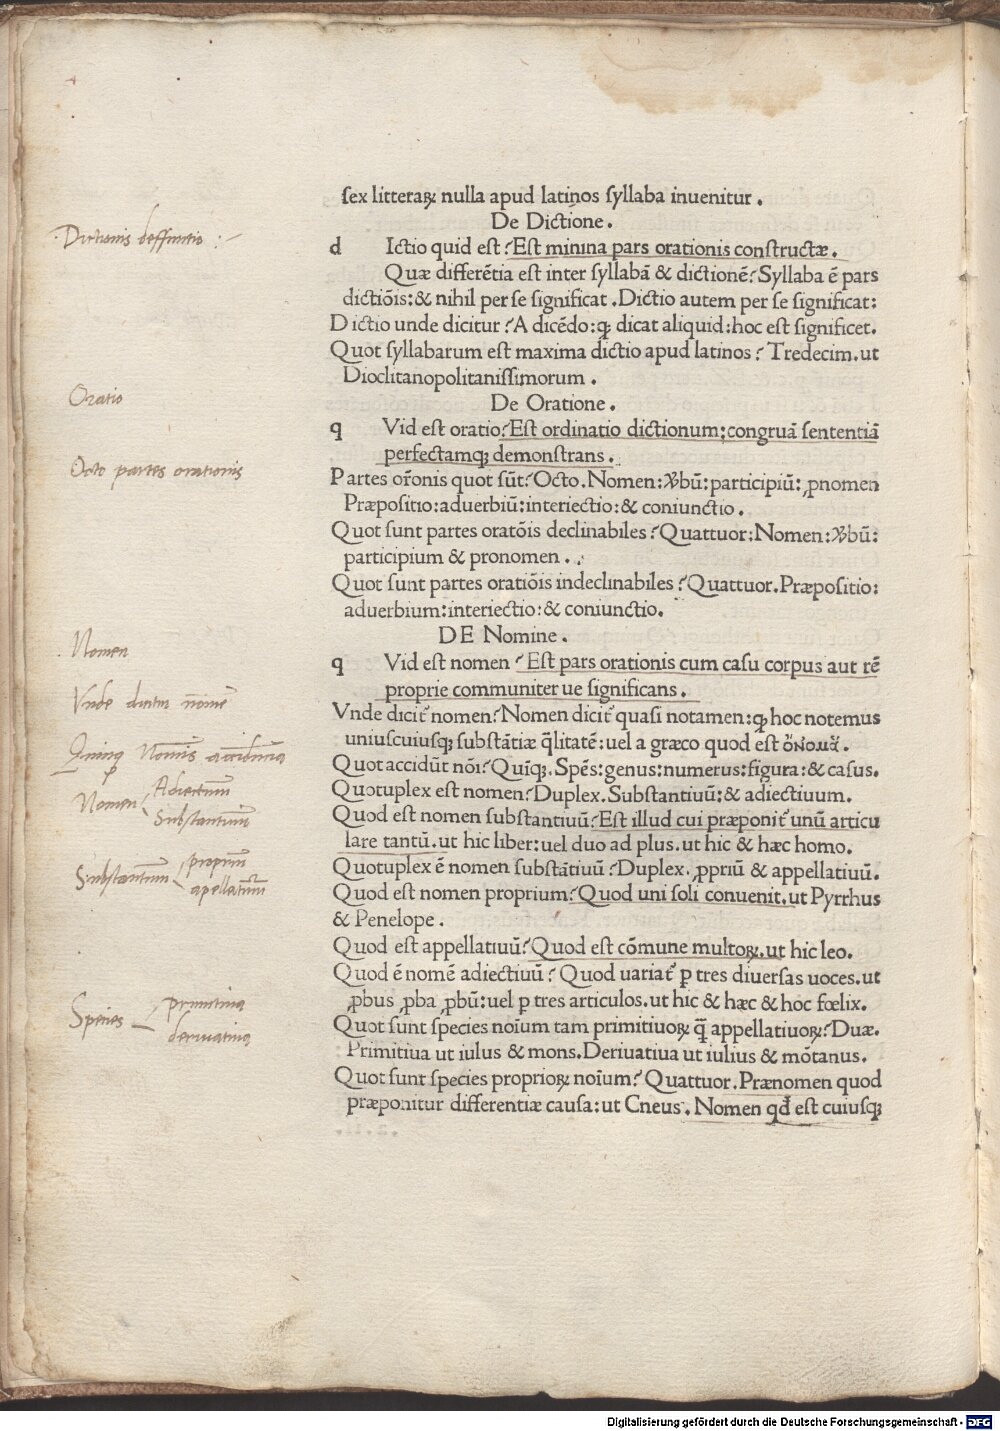 sex litteraꝝ nulla apud latinos syllaba inuenitur.
De Dictione.
Dictionis deffinitio :-
d Ictio quid est? Est minina pars orationis constructæ.
Quæ differētia est inter syllabā & dictionē? Syllaba ē pars
dictiōis: & nihil per se significat. Dictio autem per se significat:
Dictio unde dicitur? A dicēdo: ꝙ dicat aliquid: hoc est significet.
Quot syllabarum est maxima dictio apud latinos? Tredecim. ut
Dioclitanopolitanissimorum.
Oratio
De Oratione.
q Vid est oratio? Est ordinatio dictionum; congruā sententiā
perfectamqꝫ demonstrans.
Octo partes orationis
Partes orōnis quot sūt? Octo. Nomen: ꝟbū: participiū: ꝓnomen
Præpositio: aduerbiū: interiectio: & coniunctio.
Quot sunt partes oratōis declinabiles? Quattuor: Nomen: ꝟbū:
participium & pronomen.
Quot sunt partes oratiōis indeclinabiles? Quattuor. Præpositio:
aduerbium: interiectio: & coniunctio.
DE Nomine.
Nomen
q Vid est nomen? Est pars orationis cum casu corpus aut rē
proprie communiter ue significans.
Vnde dicitur nomē
Vnde dicit᷑ nomen? Nomen dicit᷑ quasi notamen: ꝙ hoc notemus
uniuscuiusqꝫ substātiæ q̄litatē: uel a græco quod est ὄνομα.
Quinqꝫ Nominis accidentia
Quot accidūt nōi? Quīqꝫ. Spēs: genus: numerus: figura: & casus.
Nomen Adiectiuum
Substantiuum
Quotuplex est nomen? Duplex. Substantiuū: & adiectiuum.
Quod est nomen substantiuū? Est illud cui præponit᷑ unū articu
lare tantū. ut hic liber: uel duo ad plus. ut hic & hæc homo.
Substantiuum proprium
apellatiuum
Quotuplex ē nomen substātiuū? Duplex. ꝓpriū & appellatiuū.
Quod est nomen proprium? Quod uni soli conuenit. ut Pyrrhus
& Penelope.
Quod est appellatiuū? Quod est cōmune multoꝝ. ut hic leo.
Quod ē nomē adiectiuū? Quod uariat᷑ ꝑ tres diuersas uoces. ut
ꝓbus ꝓba ꝓbū: uel ꝑ tres articulos. ut hic & hæc & hoc fœlix.
Species primitiua
deriuatiua
Quot sunt species noīum tam primitiuoꝝ q̄ appellatiuoꝝ? Duæ.
Primitiua ut iulus & mons. Deriuatiua ut iulius & mōtanus.
Quot sunt species proprioꝝ noīum? Quattuor. Prænomen quod
præponitur differentiæ causa: ut Cneus. Nomen qđ est cuiusqꝫ
Digitalisierung gefördert durch die Deutsche Forschungsgemeinschaft - DFG